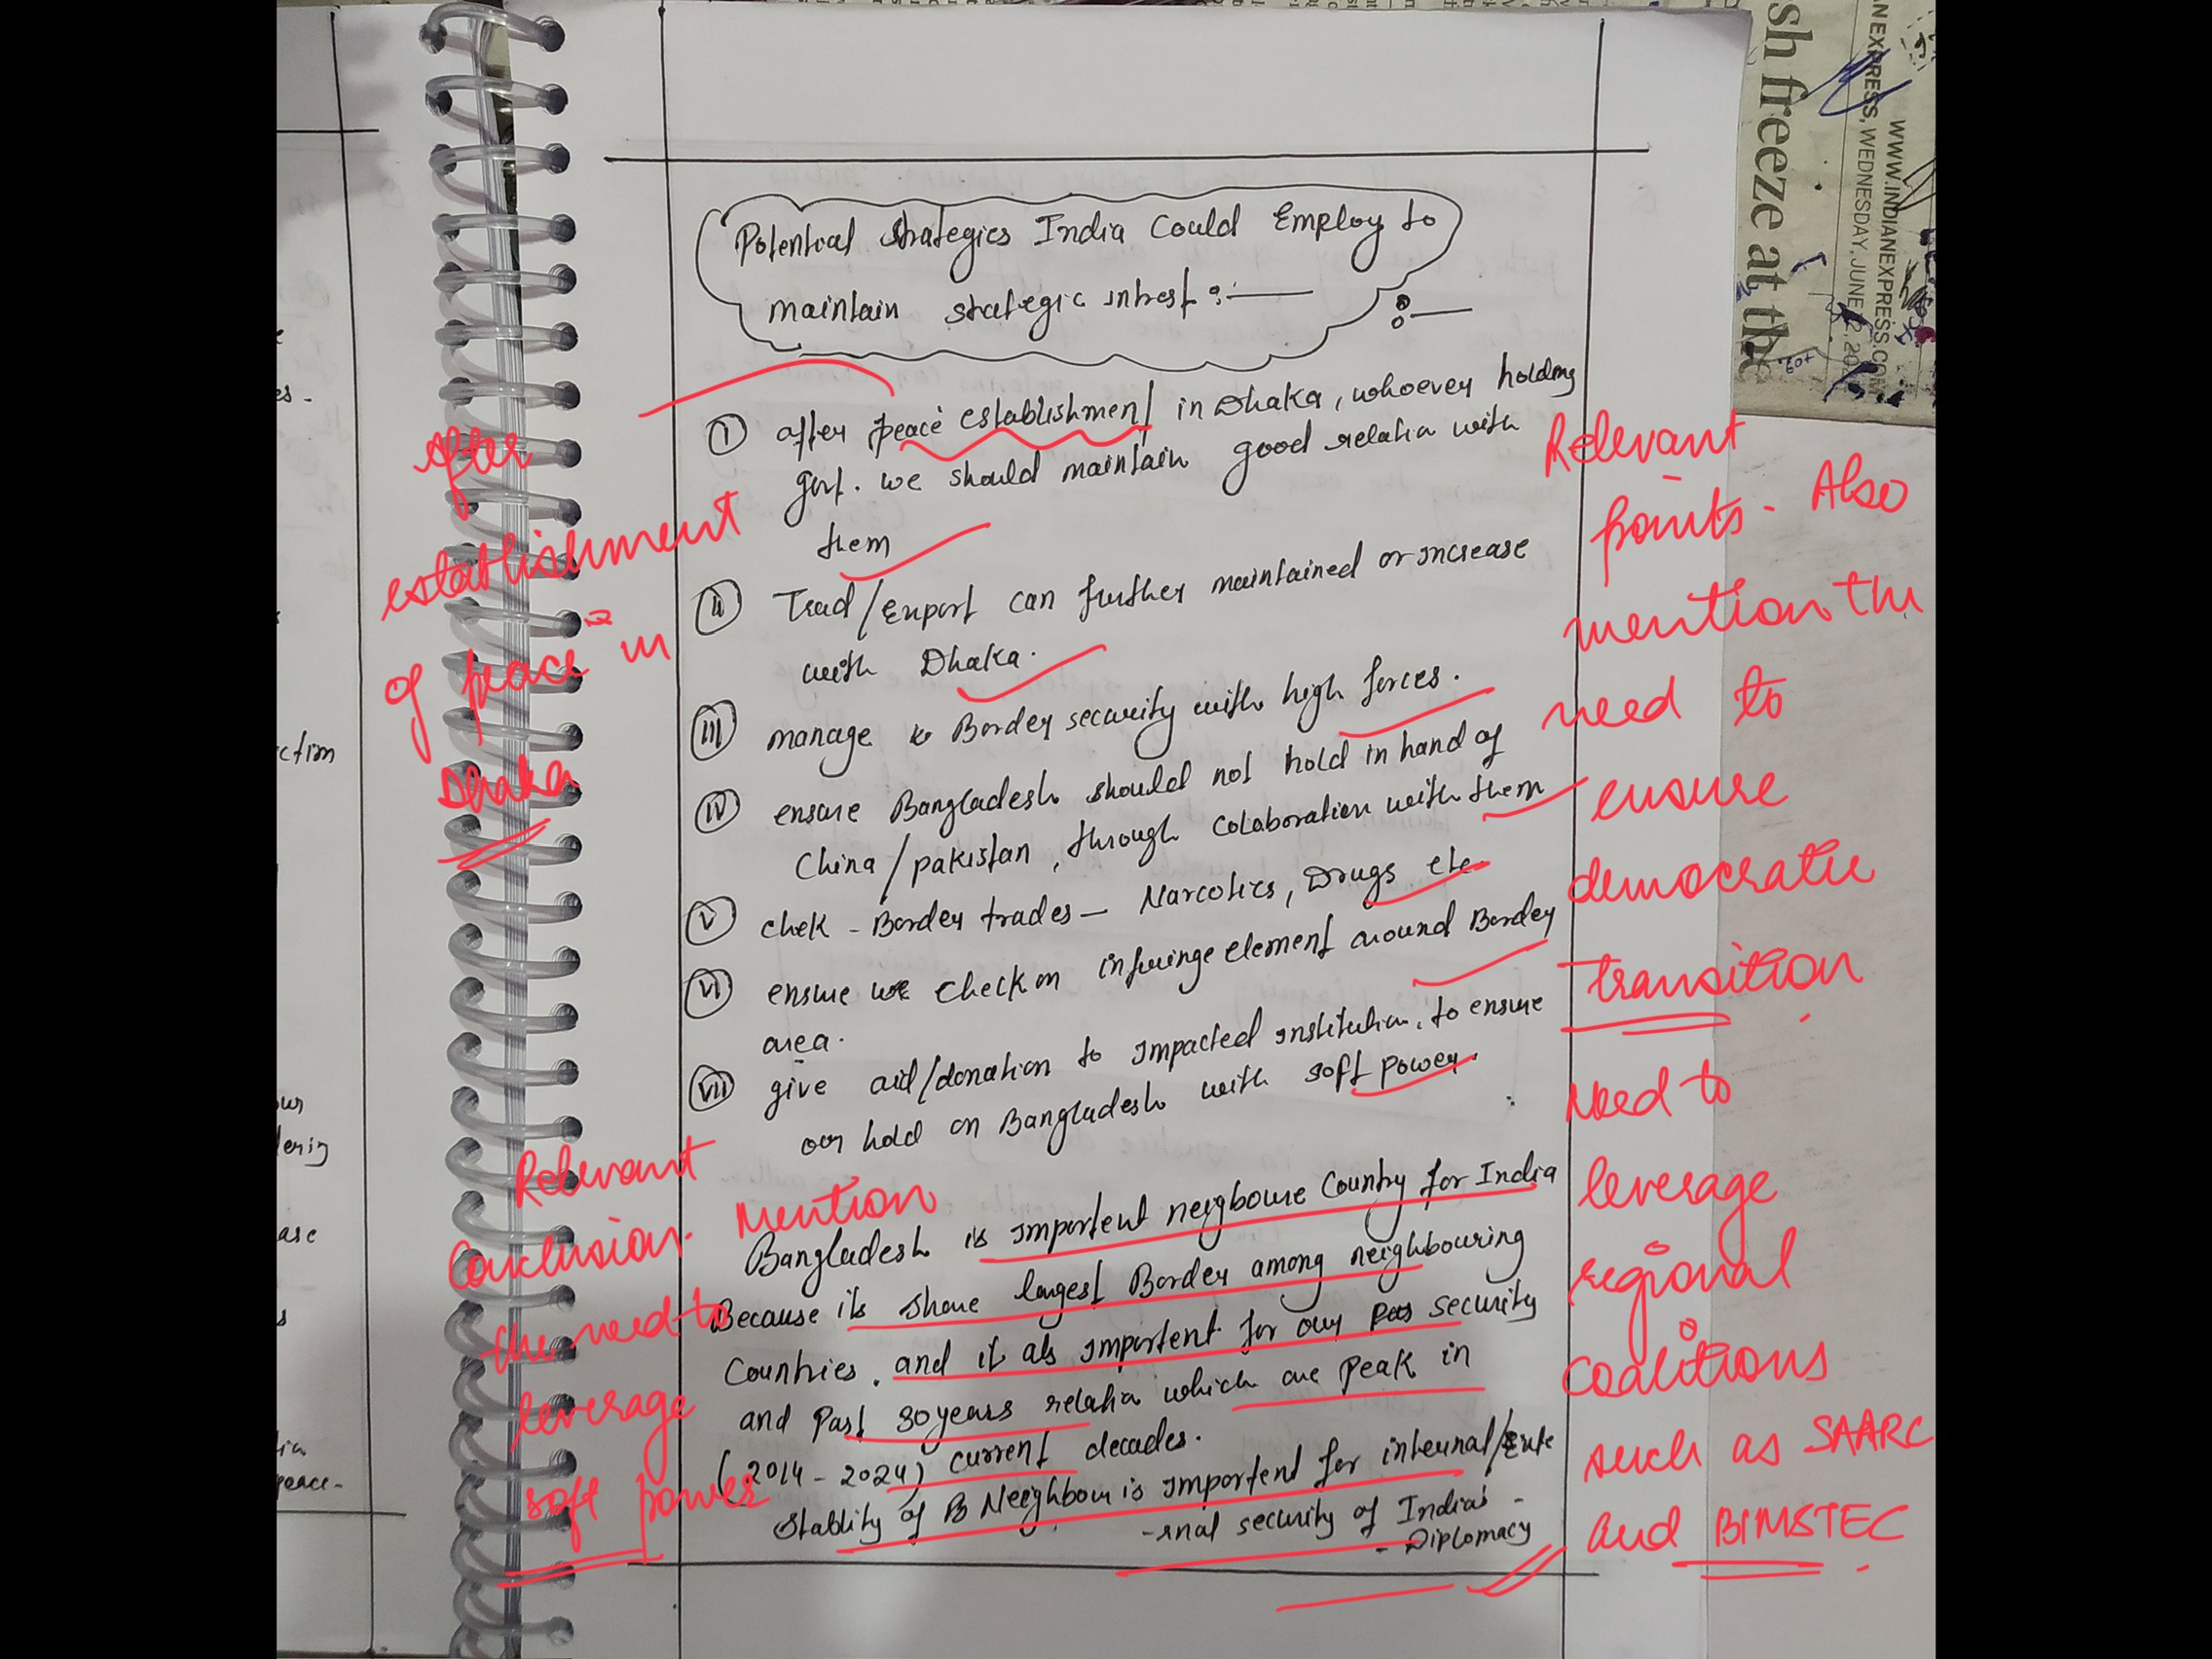 Potential strategies India Could Employ to
maintain strategic intrest :-
:-
(i) after peace establishment in Dhaka, whoever holding
govt. we should maintain good relatin with
them
(ii) Trad/Export can further maintained or increase
with Dhaka.
(iii) manage Border security with high forces.
(iv) ensure Bangladesh should not hold in hand of
China/pakistan, through colaboration with them
(v) chek - Border trades - Narcotics, Drugs etc.
(vi) ensure we check on infringe element around Border
area.
(vii) give aid/donation to impacted institution, to ensure
our hold on Bangladesh with soft power.
Bangladesh is importent neigboure Country for India
Because its share largest Border among neighbouring
Countries. and it als importent for our security
and past 30 years relatin which are peak in
(2014 - 2024) current decades.
Stablity of Neighbour is importend for internal/exte
-rnal security of India's -
- Diplomacy
After
establishment
of peace in
Dhaka
Relevant
points. Also
mention the
need to
ensure
democratic
transition.
Need to
leverage
regional
coalitions
such as SAARC
and BIMSTEC.
Relevant
Conclusion. Mention
the need to
leverage
soft power
sh freeze at the
WWW.INDIANEXPRESS.COM
AN EXPRESS, WEDNESDAY, JUNE 12, 202
es-
ction
our
lering
ase
s
peace-